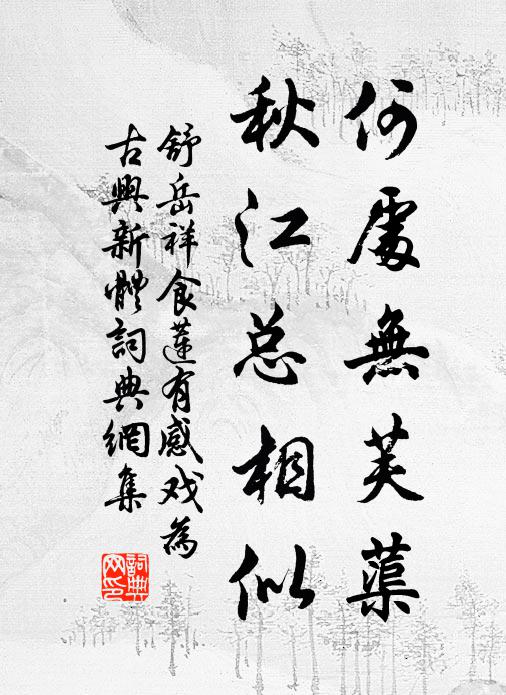 何處無芙蕖
秋江总相似
舒岳祥食莲有感戏為
古興新體詞典網集
詞典网印